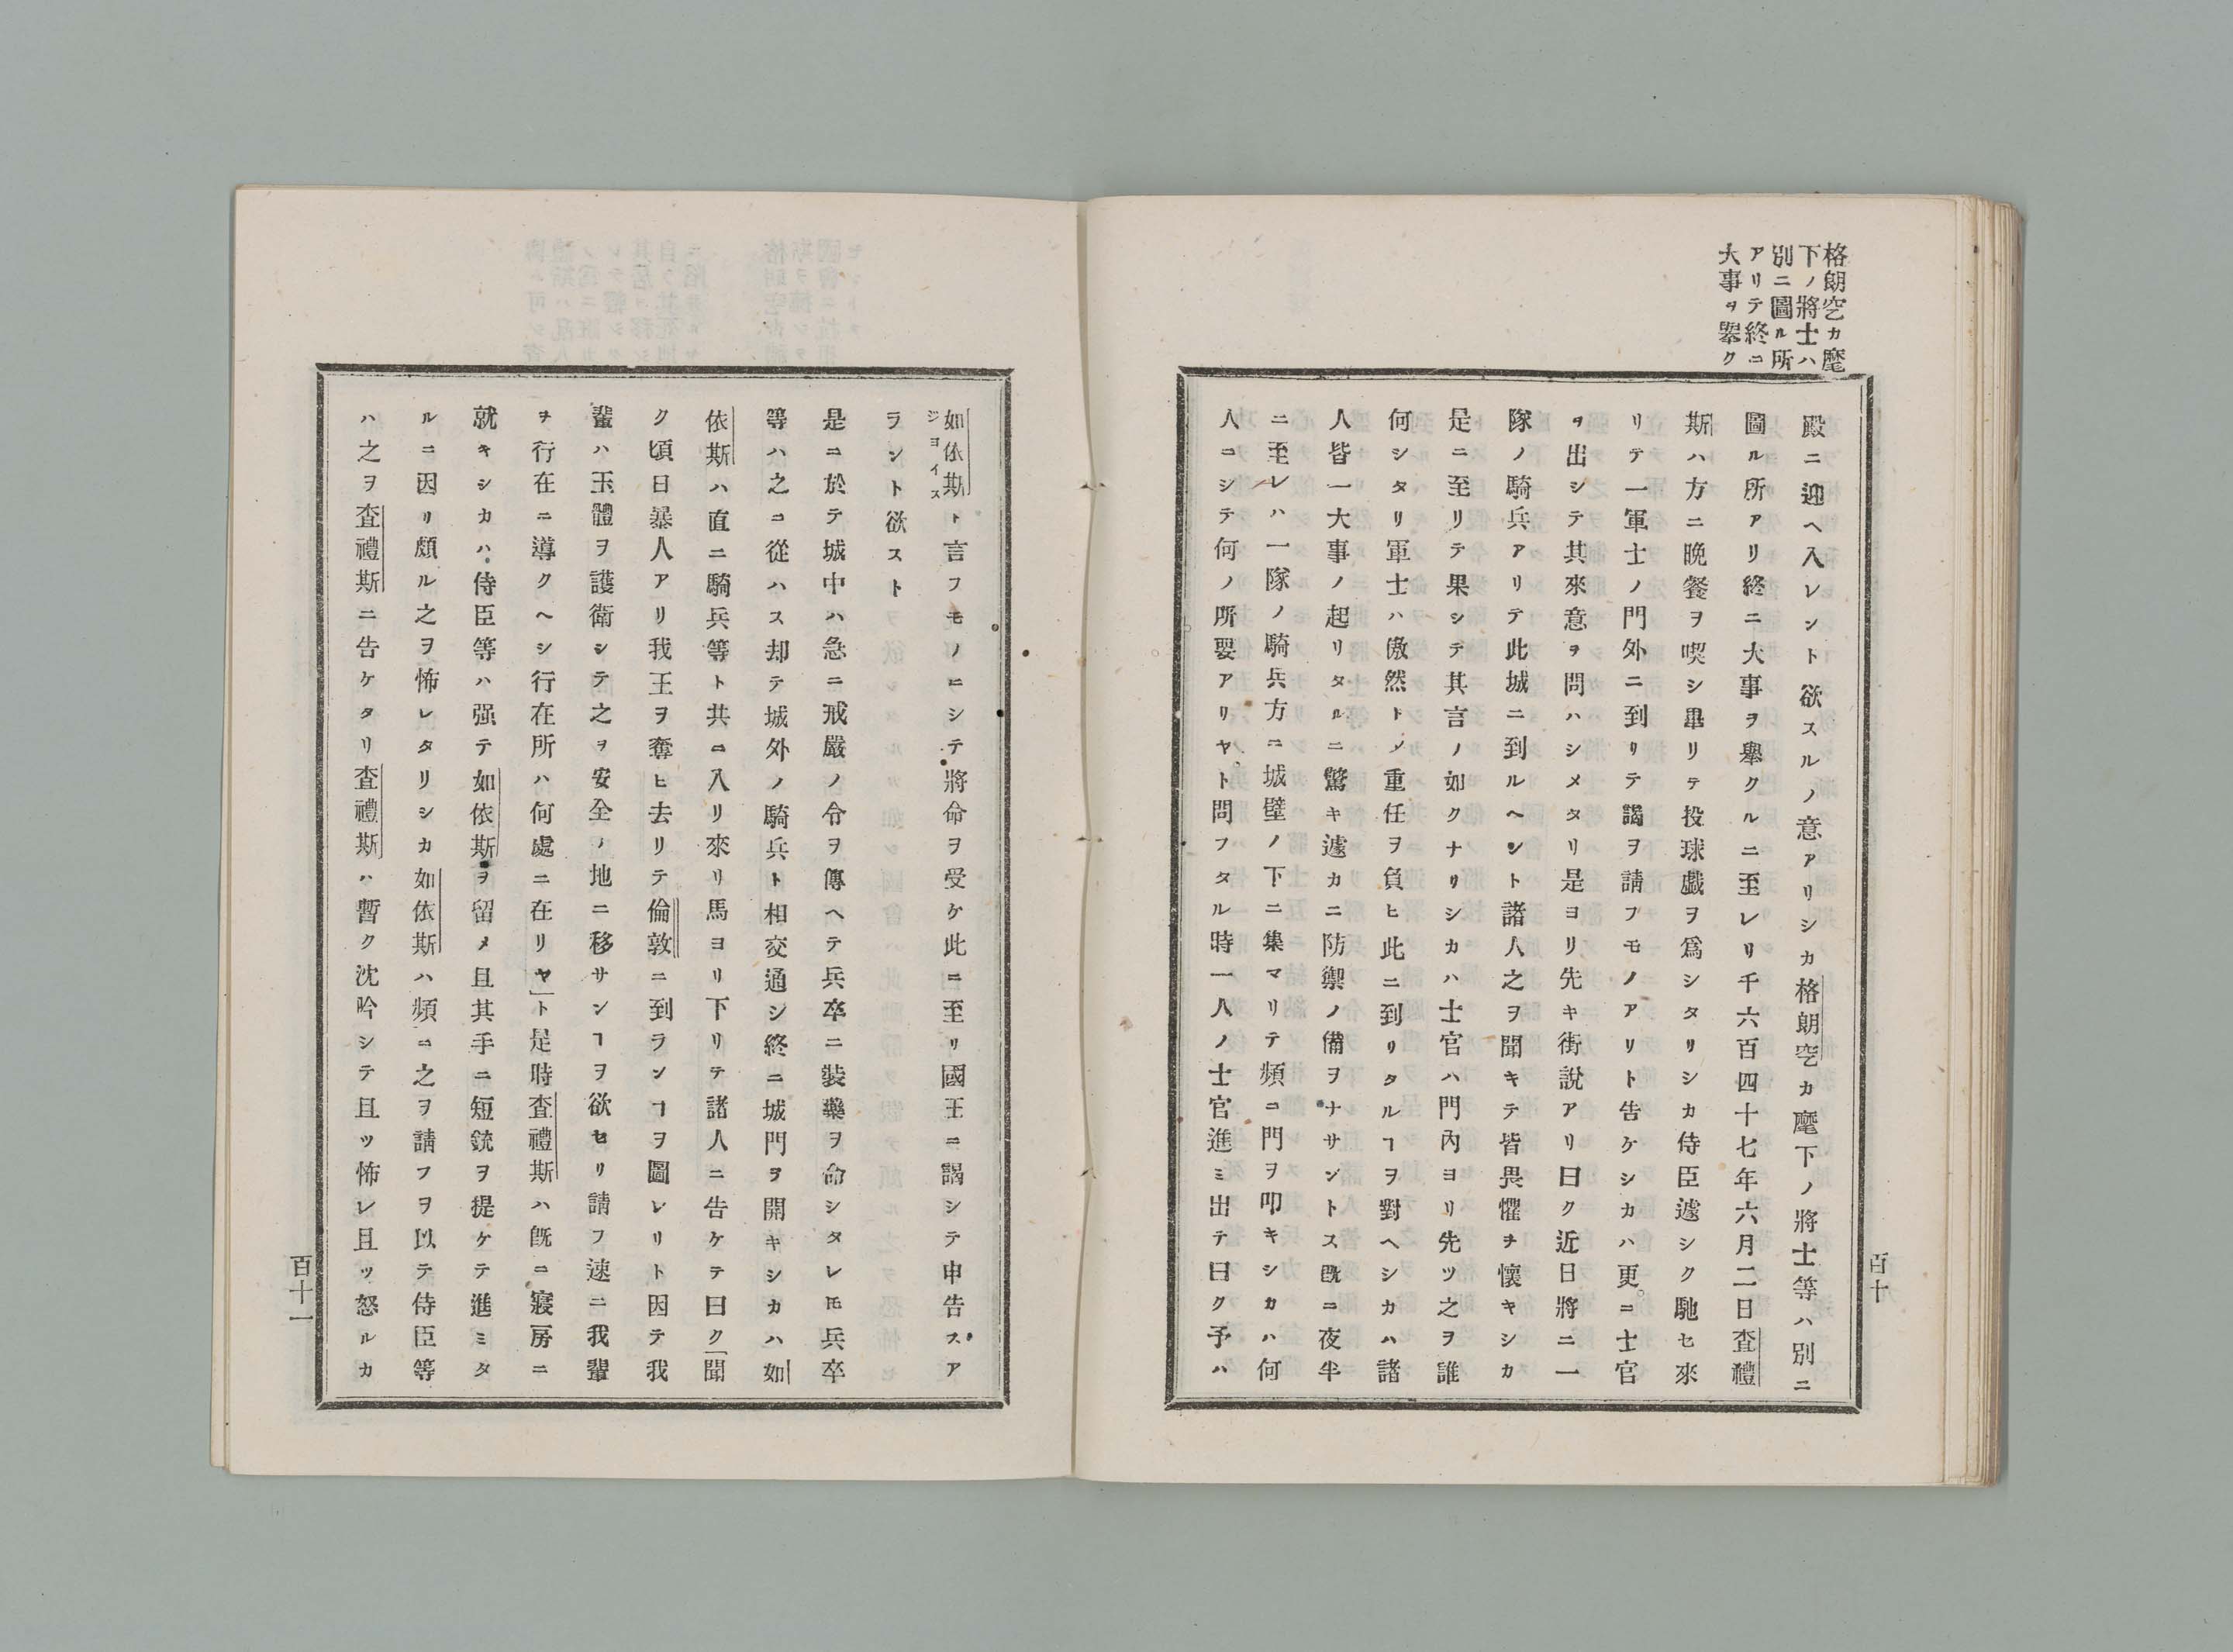 格朗空カ麾
下ノ將士ハ
別ニ圖ル所
アリテ終ニ
大事ヲ擧ク
殿ニ迎ヘ入レント欲スルノ意アリシカ格朗空カ麾下ノ將士等ハ別ニ
圖ル所アリ終ニ大事ヲ擧クルニ至レリ千六百四十七年六月二日査禮
斯ハ方ニ晩餐ヲ喫シ畢リテ投球戯ヲ爲シタリシカ侍臣遽シク馳セ來
リテ一軍士ノ門外ニ到リテ謁ヲ請フモノアリト告ケシカハ更ニ士官
ヲ出シテ其來意ヲ問ハシメタリ是ヨリ先キ街說アリ曰ク近日將ニ一
隊ノ騎兵アリテ此城ニ到ルヘント諸人之ヲ聞キテ皆畏懼ヲ懷キシカ
是ニ至リテ果シテ其言ノ如クナリシカハ士官ハ門內ヨリ先ツ之ヲ誰
何シタリ軍士ハ傲然トノ重任ヲ負ヒ此ニ到リタルヿヲ對ヘシカハ諸
人皆一大事ノ起リタルニ驚キ遽カニ防禦ノ備ヲナサントス既ニ夜半
ニ至レハ一隊ノ騎兵方ニ城壁ノ下ニ集マリテ頻ニ門ヲ叩キシカハ何
人ニシテ何ノ所要アリヤト問フタル時一人ノ士官進ミ出テ曰ク予ハ
百十
如依斯ト言フモノニシテ將命ヲ受ケ此ニ至リ國王ニ謁シテ申告スア
ジヨイス
ラント欲スト
是ニ於テ城中ハ急ニ戒嚴ノ令ヲ傳ヘテ兵卒ニ裝藥ヲ命シタレ𪜈兵卒
等ハ之ニ從ハス却テ城外ノ騎兵ト相交通シ終ニ城門ヲ開キシカハ如
依斯ハ直ニ騎兵等ト共ニ入リ來リ馬ヨリ下リテ諸人ニ告ケテ曰ク「聞
ク頃日暴人アリ我王ヲ奪ヒ去リテ倫敦ニ到ランヿヲ圖レリト因テ我
輩ハ玉體ヲ護衛シテ之ヲ安全ノ地ニ移サンヿヲ欲セリ請フ速ニ我輩
ヲ行在ニ導クヘシ行在所ハ何處ニ在リヤ」ト是時査禮斯ハ既ニ寢房ニ
就キシカハ侍臣等ハ强テ如依斯ヲ留メ且其手ニ短銃ヲ提ケテ進ミタ
ルニ因リ頗ル之ヲ怖レタリシカ如依斯ハ頻ニ之ヲ請フヲ以テ侍臣等
ハ之ヲ査禮斯ニ告ケタリ査禮斯ハ暫ク沈吟シテ且ツ怖レ且ツ怒ルカ
百十一